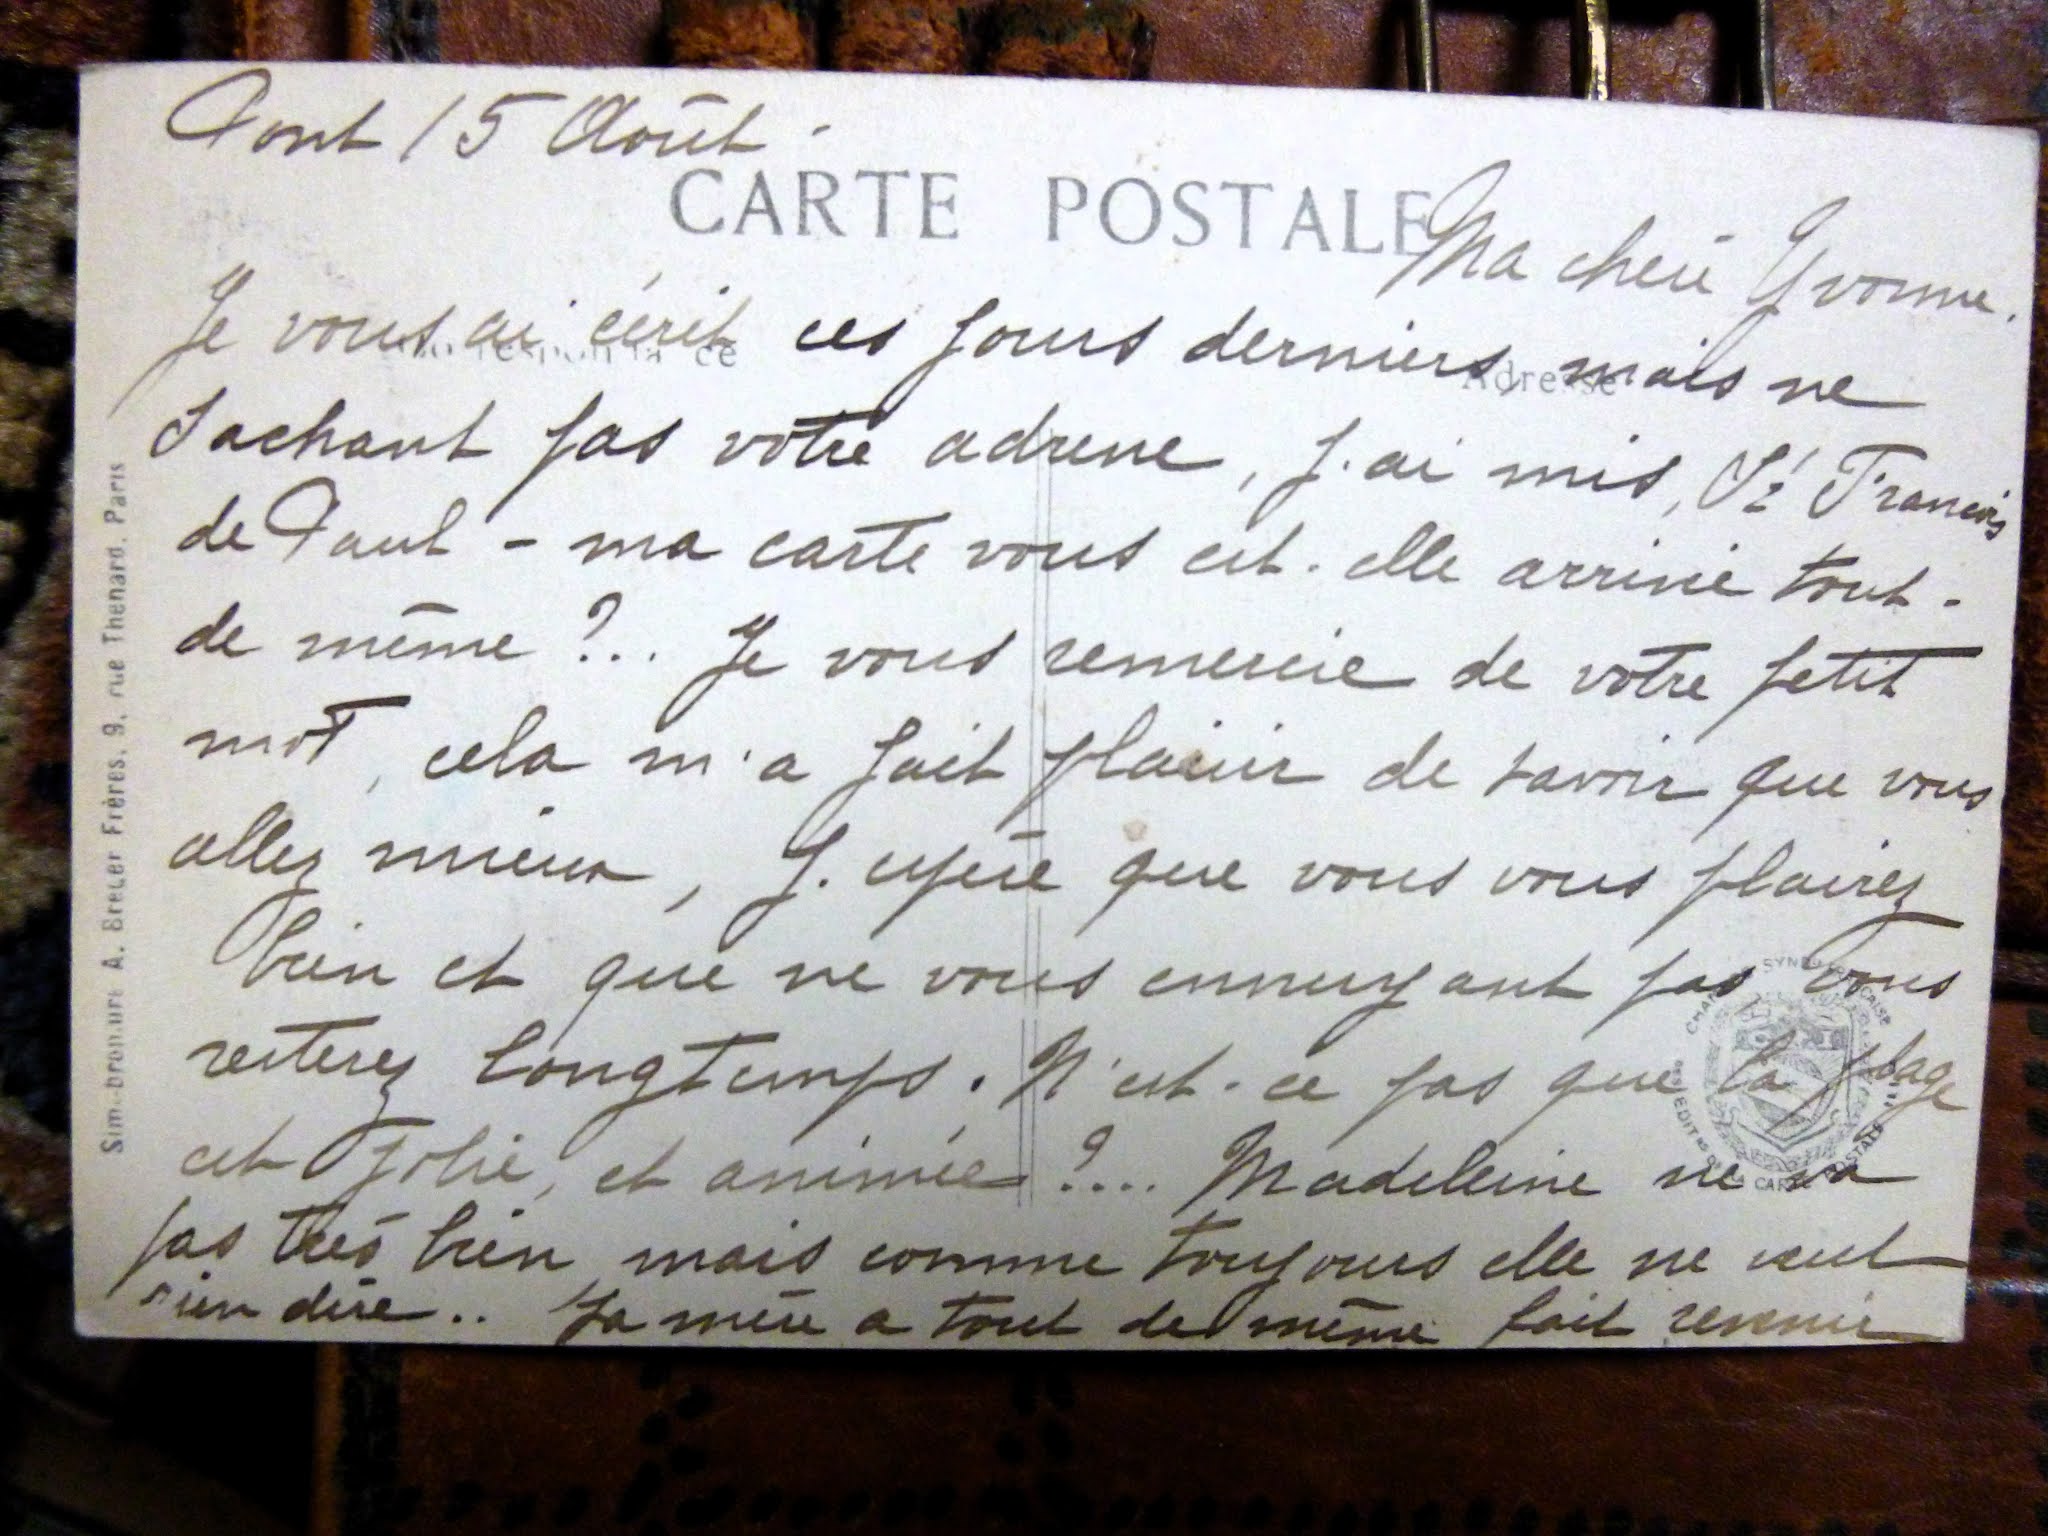 Pont 15 Août.
CARTE POSTALE
Ma chère Yvonne.
Correspondance
Adresse
Je vous ai écrit ces jours derniers, mais ne
sachant pas votre adresse, j'ai mis, St François
de Paul - ma carte vous est-elle arrivée tout-
de même ?.. Je vous remercie de votre petit
mot, cela m'a fait plaisir de savoir que vous
allez mieux, J'espère que vous vous plairez
bien et que ne vous ennuyant pas vous
resterez longtemps. N'est-ce pas que la plage
est jolie, et animée ?.... Madeleine ne va
pas très bien mais comme toujours elle ne veut
rien dire.. Sa mère a tout de même fait revenir
Simi-bromure A. Breger Frères, 9, rue Thenard, Paris
CHAMBRE SYNDICALE FRANÇAISE
DES EDITRS DE LA CARTE POSTALE ILLEE